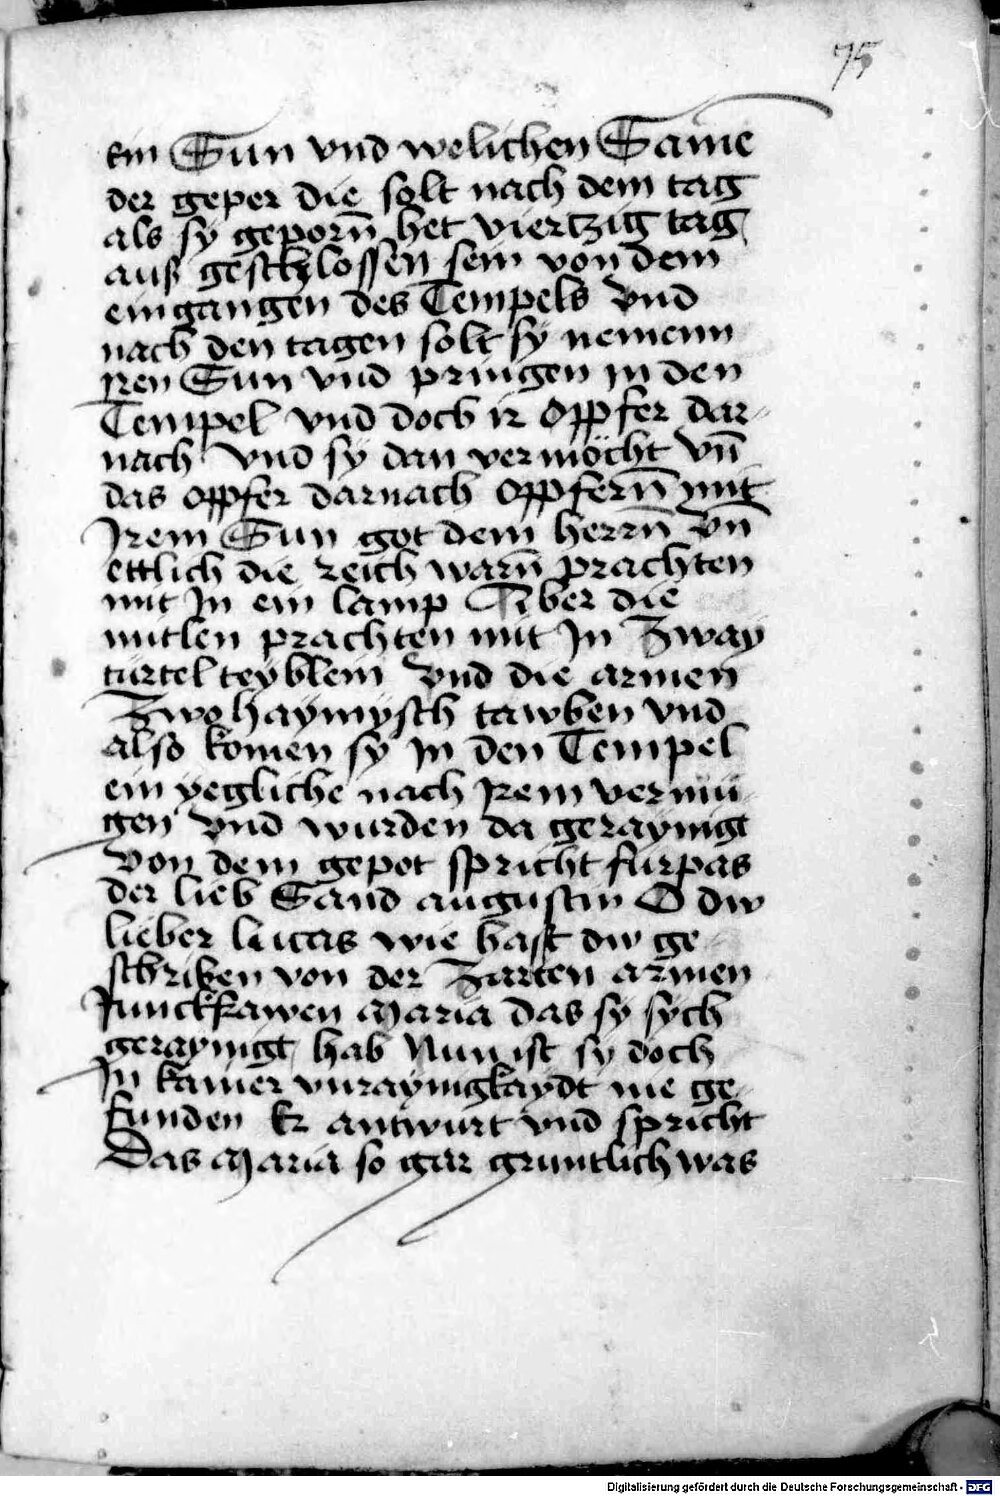 75
ein Sun vnd welichen Same
der geper die solt nach dem tag
als sy geporn̄ het viertzig tag
auß geschlossen sein von dem
eingangen des Tempels Vnd
nach den tagen solt sÿ nemenn
jren Sun vnd pringen jn den
Tempel vnd doch ir opfer dar-
nach Vnd sÿ dan vermöcht Vn̄
das opfer darnach opfern̄ mit
Jrem Sun got dem herrn̄ Vn̄
ettlich die reich warn̄ prachten
mit Jn ein lamp Aber die
mitlen prachten mit Jn Zway
türtel teyblein Vnd die armen
Zwo haÿmÿsch tawben vnd
also komen sÿ Jn den Tempel
ein yegliche nach Jrem vermü-
gen Vnd wurden da geraynigt
Von dem gepot spricht furpas
der lieb Sand augustin O dw
lieber lucas wie hast dw ge-
schriben von der Zarten armen
Junckfrawen Maria das sy sych
geraynigt hab Nun ist sy doch
Jn kainer vnraynigkaydt nie ge-
funden Er antwurt vnd spricht
Das Maria so gar gruntlich was
Digitalisierung gefördert durch die Deutsche Forschungsgemeinschaft - DFG